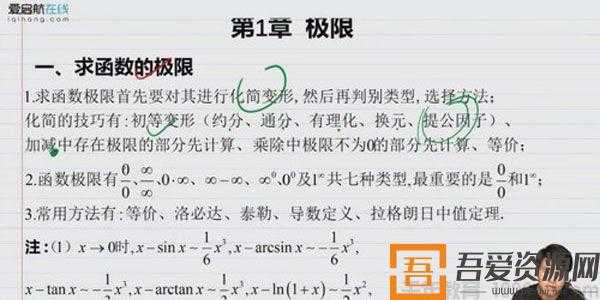 爱启航在线
iqihang.com
第1章 极限
一、求函数的极限
1.求函数极限首先要对其进行化简变形,然后再判别类型,选择方法;
化简的技巧有:初等变形（约分、通分、有理化、换元、提公因子）、
加减中存在极限的部分先计算、乘除中极限不为0的部分先计算、等价;
2.函数极限有0/0、∞/∞、0·∞、∞−∞、∞⁰、0⁰及1^∞共七种类型,最重要的是0/0和1^∞;
3.常用方法有:等价、洛必达、泰勒、导数定义、拉格朗日中值定理.
注:(1) x→0时, x−sin x ~ 1/6 x³, x−arcsin x ~ −1/6 x³,
x−tan x ~ −1/3 x³, x−arctan x ~ 1/3 x³, x−ln(1+x) ~ 1/2 x²,
吾爱资源网